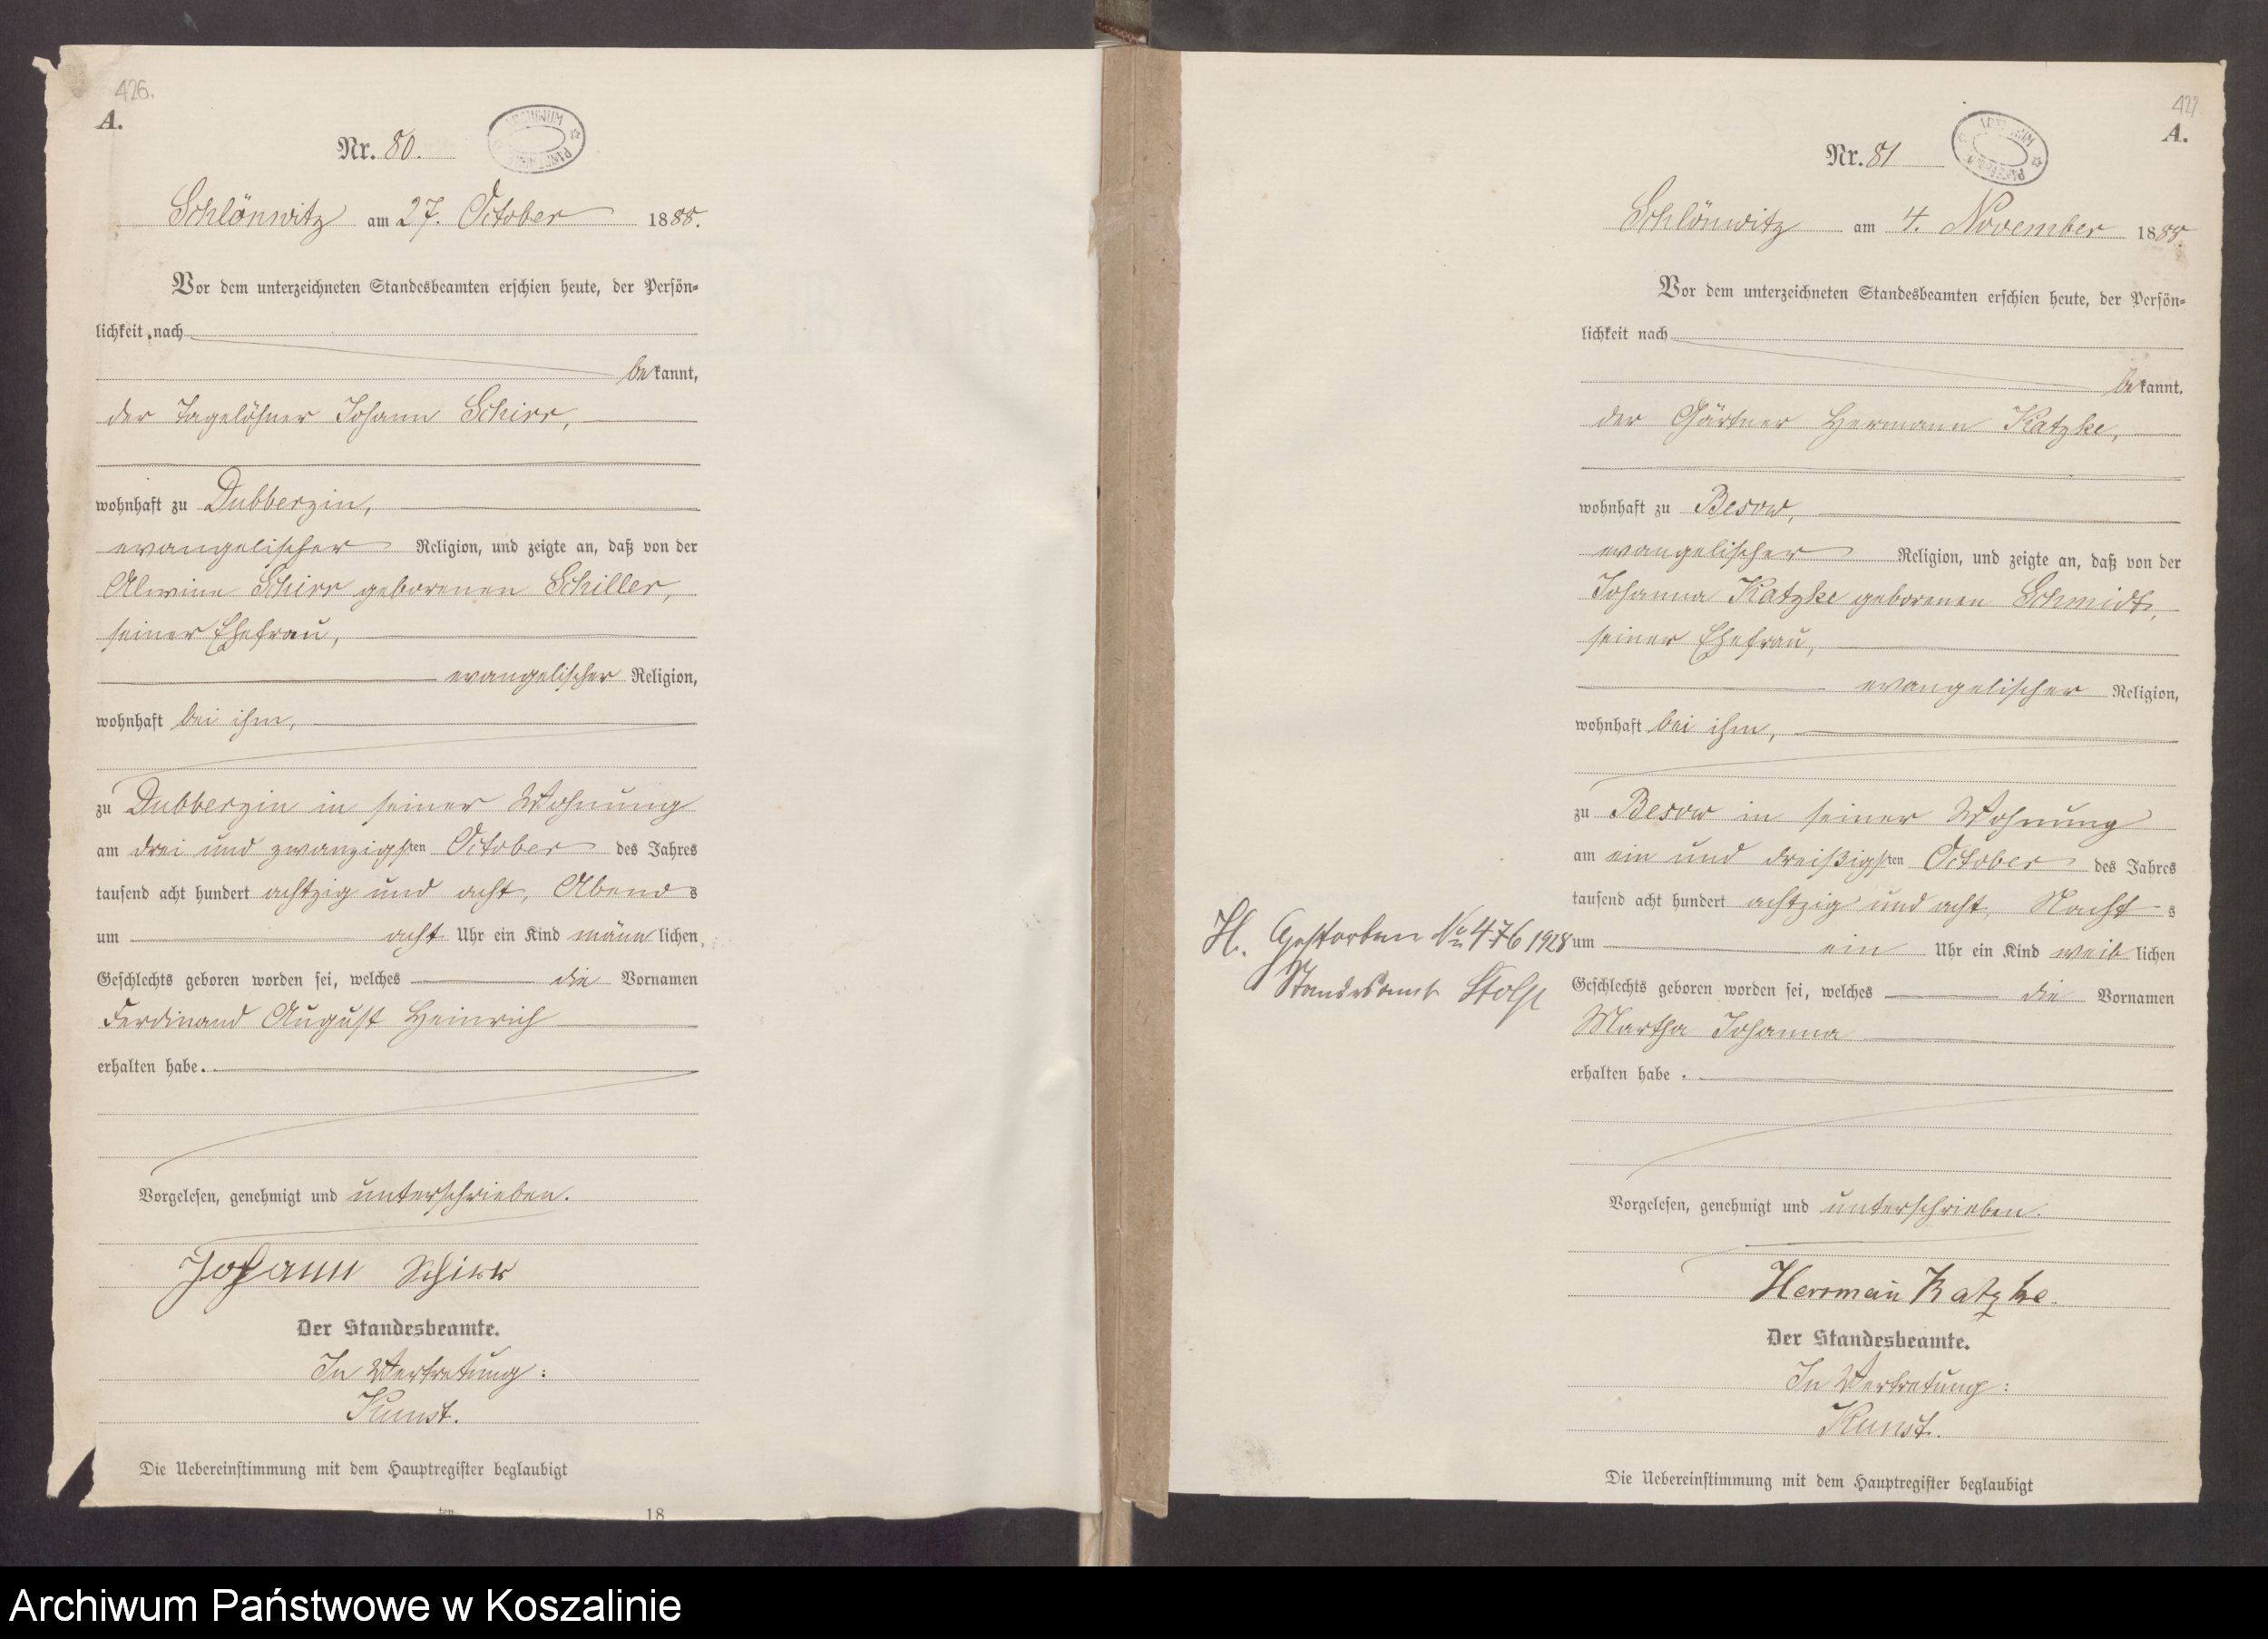 426.
A.
Nr. 80.
ARCHIWUM
Schlönwitz am 27. October 1888.
Vor dem unterzeichneten Standesbeamten erschien heute, der Persön-
lichkeit nach
bekannt,
der Tagelöhner Johann Schirr,
wohnhaft zu Dubberzin,
evangelischer Religion, und zeigte an, daß von der
Alwine Schirr geborenen Schiller,
seiner Ehefrau,
evangelischer Religion,
wohnhaft bei ihm,
zu Dubberzin in seiner Wohnung
am drei und zwanzigsten October des Jahres
tausend acht hundert achtzig und acht, Abends
um acht Uhr ein Kind männlichen
Geschlechts geboren worden sei, welches die Vornamen
Ferdinand August Heinrich
erhalten habe.
Vorgelesen, genehmigt und unterschrieben.
Johann Schirr
Der Standesbeamte.
In Vertretung:
Kunst.
Die Uebereinstimmung mit dem Hauptregister beglaubigt
ten 18
427
A.
Nr. 81
Schlönwitz am 4. November 1888.
Vor dem unterzeichneten Standesbeamten erschien heute, der Persön-
lichkeit nach
bekannt,
der Gärtner Hermann Katzke,
wohnhaft zu Besow,
evangelischer Religion, und zeigte an, daß von der
Johanna Katzke geborenen Schmidt,
seiner Ehefrau,
evangelischer Religion,
wohnhaft bei ihm,
zu Besow in seiner Wohnung
am ein und dreißigsten October des Jahres
tausend acht hundert achtzig und acht, Nachts
um ein Uhr ein Kind weiblichen
Geschlechts geboren worden sei, welches die Vornamen
Martha Johanna
erhalten habe.
H. Gestorben No 476 1928
Standesamt Stolp
Vorgelesen, genehmigt und unterschrieben.
Herrmann Katzke.
Der Standesbeamte.
In Vertretung:
Kunst.
Die Uebereinstimmung mit dem Hauptregister beglaubigt
Archiwum Państwowe w Koszalinie